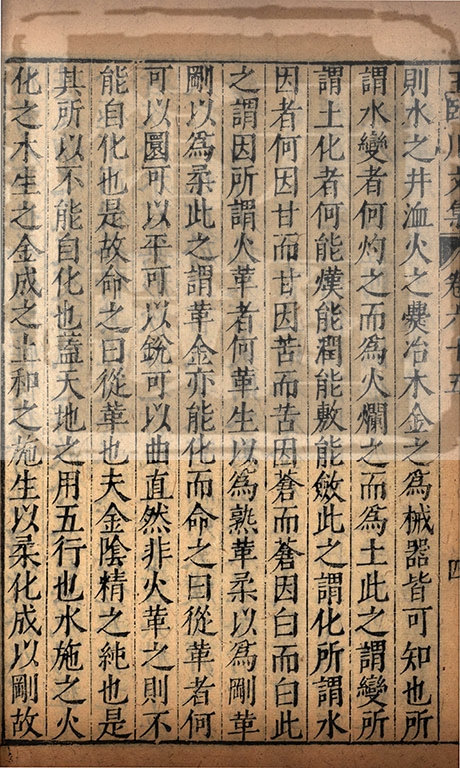 王臨川文集 卷六十五 四
則水之井洫火之爨冶木金之為械器皆可知也所
謂水變者何灼之而為火爛之而為土此之謂變所
謂土化者何能熯能潤能敷能斂此之謂化所謂水
因者何因甘而甘因苦而苦因蒼而蒼因白而白此
之謂因所謂火革者何革生以為熟革柔以為剛革
剛以為柔此之謂革金亦能化而命之曰從革者何
可以圜可以平可以銳可以曲直然非火革之則不
能自化也是故命之曰從革也夫金陰精之純也是
其所以不能自化也蓋天地之用五行也水施之火
化之木生之金成之土和之施生以柔化成以剛故